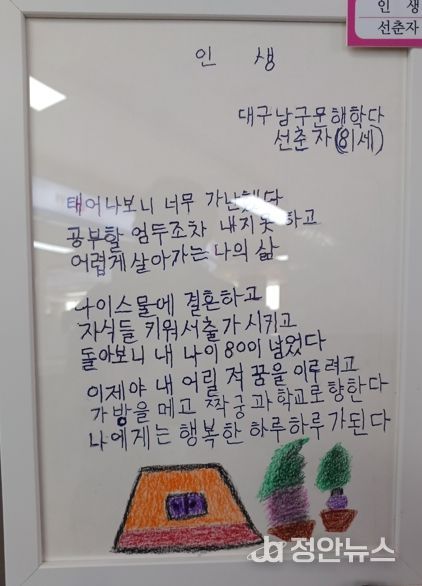 인 생
선춘자
인 생
대구남구문해학다
선춘자(81세)
태어나보니 너무 가난했다
공부할 엄두조차 내지못 하고
어렵게살아가는 나의 삶
나이스물에 결혼하고
자식들 키워서출가시키고
돌아보니 내 나이 80이 넘었다
이제야 내 어릴 적 꿈을 이루려고
가방을 메고 짝궁과학교로향한다
나에게는 행복한 하루하루가된다
정안뉴스